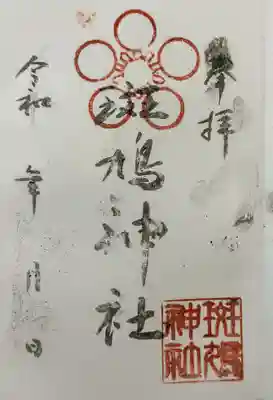 奉拝
斑鳩神社
令和 年 月 日
斑鳩
神社